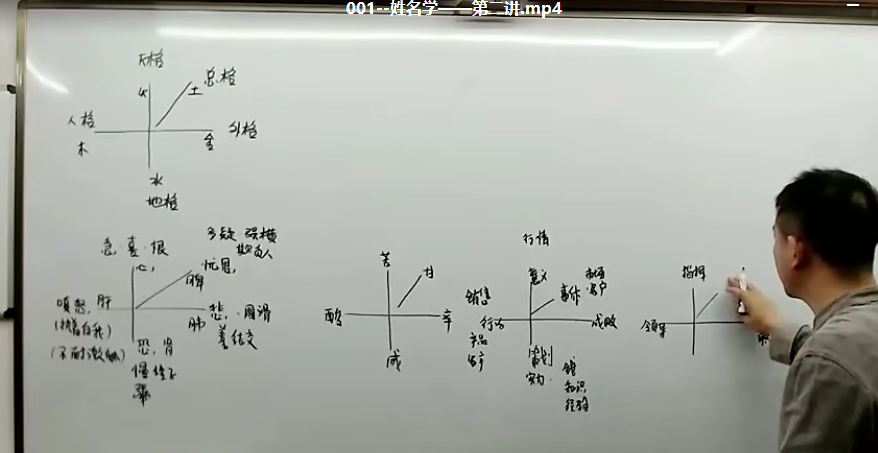 001--姓名学——第二讲.mp4
天格
火
土
总格
人格
木
金
外格
水
地格
急.喜.恨
心,
多疑 强横
欺负人
忧思,
脾
嗔怒,肝
肺
悲,圆滑
善结交
恐,肾
慢性子
苦
甘
酸
辛
咸
行情
意义
事体
客户
销售
行为
成败
产品
生产
策划
实力
钱
知识
经验
指挥
领导